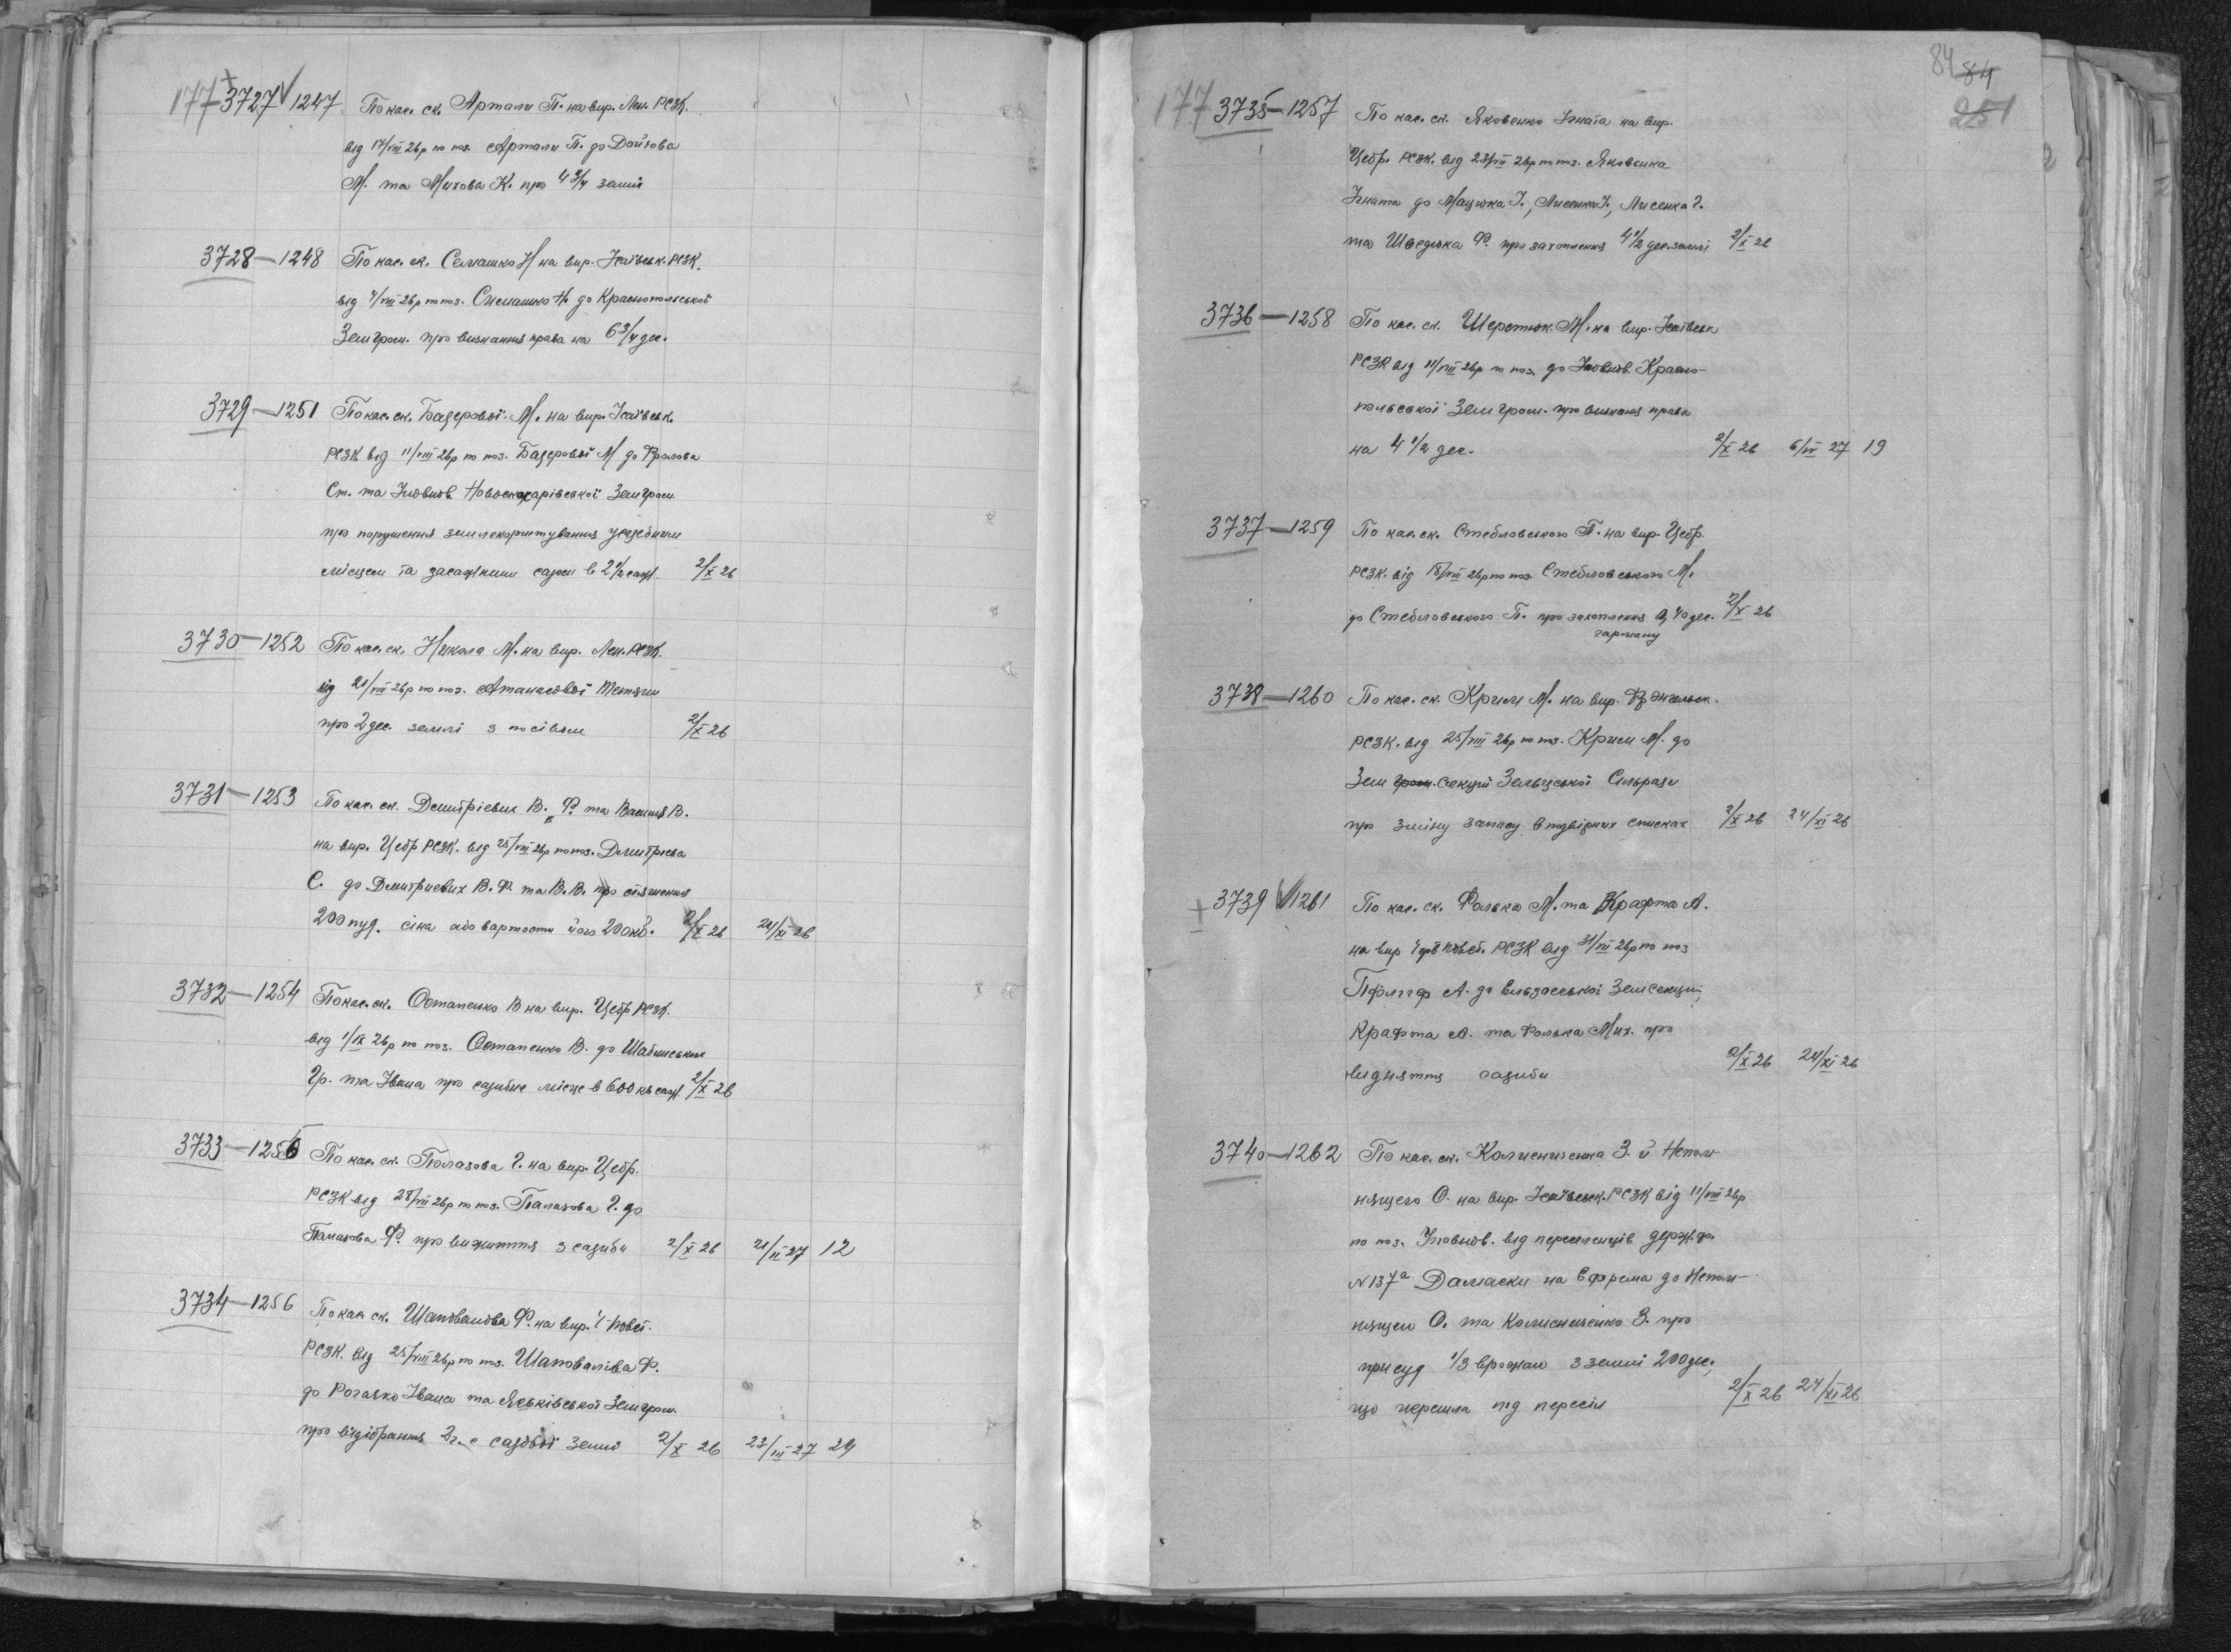 177 3727 1247 По кас. ск. Артали П. на вир. Лен. РСЗК.
від 17/VIII 26р по поз. Артали П. до Дойкова
М. та Михова К. про 4 3/4 землі
3728 — 1248 По кас. ск. Семашко Н на вир. Ісаївськ. РСЗК.
від 4/VIII 26р по поз. Симашко Н. до Краснопольської
Земгром. про визнання права на 6 3/4 дес.
3729 — 1251 По кас. ск. Бадерової М. на вир. Ісаївськ.
РСЗК від 11/VIII 26р по поз. Бадерової М до Фролова
Ст. та Уповнов. Земгром.
про порушення землекористування
місцем та садом в 2 1/2 саж. 2/X 26
3730 — 1252 По кас. ск. Никола М. на вир. Лен. РСЗК.
від 21/VIII 26р по поз. Атанасової Тетяни
про 2 дес. землі з посівом 2/X 26
3731 — 1253 По кас. ск. Дмитрієвих В. Ф. та Василя В.
на вир. Цебр РСЗК. від 25/VIII 26р по поз. Дмитрієва
С. до Дмитриевих В. Ф. та В. В. про стягнення
200 пуд. сіна або вартости його 200 кб. 2/X 26 24/XI 26
3732 — 1254 По кас. ск. Остапенко В на вир. Цебр РСЗК.
від 1/IX 26р по поз. Остапенко В. до
Гр. та Івана про садибне місце в 600 кв саж. 2/X 26
3733 — 1255 По кас. ск. Палазова Г. на вир. Цебр.
РСЗК від 28/VIII 26р по поз. Палазова Г. до
Палазова Ф. про вижиття з садиби 2/X 26 21/II 27 12
3734 — 1256 По кас ск. Шаповалова Ф. на вир.
РСЗК. від 25/VIII 26р по поз. Шаповаліва Ф.
до Рогачко Івана та Яськівської Земгром.
про відібрання садової землі 2/X 26 23/III 27 29
84 84
251
177 3735 — 1257 По кас. ск. Яковенко Ігната на вир.
Цебр. РСЗК. від 23/VII 26р по поз. Яковенка
Ігната до Мацюка І., Лисенка І., Лисенка Г.
та Шведюка Ф. про захоплення 4 1/2 дес. землі 2/X 26
3736 — 1258 По кас. ск. Шеретюк М. на вир. Ісаївськ
РСЗК від 11/VIII 26р по поз. до Уповнов. Красно-
польської Земгром. про визнання права
на 4 1/2 дес. 2/X 26 6/IV 27 19
3737 — 1259 По кас. ск. Стебловського П. на вир. Цебр.
РСЗК. від 18/VIII 26р по поз. Стебловського М.
до Стебловського П. про захоплення 0,40 дес. 2/X 26
гарману
3738 — 1260 По кас. ск. Крим М. на вир. Фр Енгельск.
РСЗК. від 25/VIII 26р по поз. Крим М. до
Зем гром. секції Зельцської Сільради
про зміну запису в подвірних списках 2/X 26 24/XI 26
3739 1261 По кас. ск. Фолько М. та Крафта А.
на вир РСЗК від 31/VII 26р по поз
А. до Ельзаської Земсекції,
Крафта А. та Фолька Мих. про
видняття садиби 2/X 26 24/XI 26
3740 — 1262 По кас. ск. Колисниченка З. й Непом-
нящего О. на вир. Ісаївськ. РСЗК від 11/VIII 26р
по поз. Уповнов. від переселенців держф.
№ 137а Дамаски на Єфрема до Непом-
нящем О. та Колисниченко З. про
присуд 1/3 врожаю з землі 200 дес.,
що перешла під пересел 2/X 26 24/XI 26